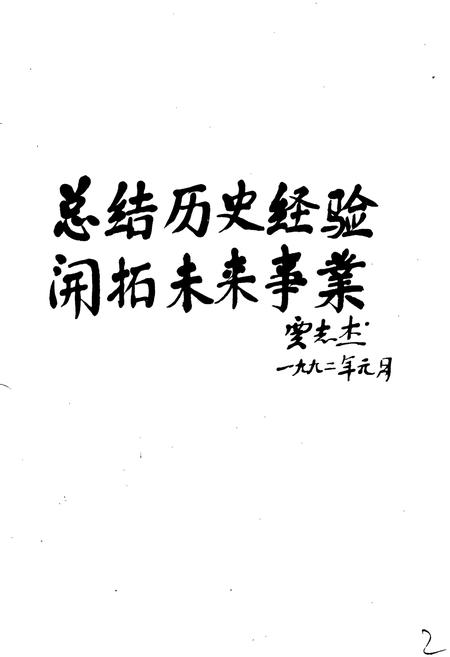 总结历史经验
開拓未来事業
贾志杰
一九九二年元月
2